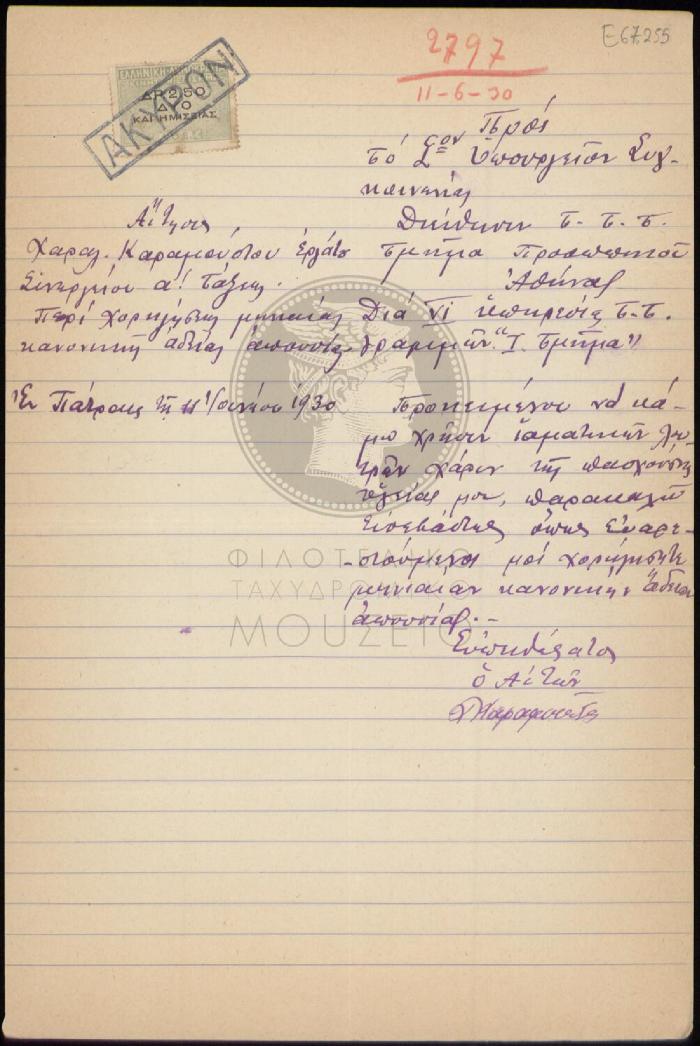 E67.255
2797
11-6-30
ΕΛΛΗΝΙΚΗ ΔΗΜΟΚΡΑΤΙΑ
ΔΡ 2,50
ΔΥΟ
ΚΑΙ ΗΜΙΣΕΙΑΣ
ΑΚΥΡΟΝ
Πρός
τό Σον Ὑπουργεῖον Συγ-
κοινωνίας
Διεύθυνσιν Τ.Τ.Τ.
Τμῆμα Προσωπικοῦ
Ἀθήνας
Διά VI ἐπιθεωρ. Τ.Τ.
Γραμμῶν "Ι. Τμῆμα"
Αἴτησις
Χαραλ. Καραμούστου Ἐργάτου
Συνεργείου α! τάξεως.
Περί χορηγήσεως μηνιαίας
κανονικῆς ἀδείας ἀπουσίας
Ἐν Πάτραις τῇ 11 Ἰουνίου 1930
Προκειμένου νά κά-
μω χρῆσιν ἰαματικῶν λου-
τρῶν χάριν τῆς πασχούσης
ὑγείας μου, παρακαλῶ
εὐσεβάστως ὅπως εὐαρε-
-στούμενοι μοί χορηγήσητε
μηνιαίαν κανονικήν ἄδειαν
ἀπουσίας.-
Εὐπειθέστατος
ὁ Αἰτῶν
ΦΙΛΟΤΕΛΙΚΟ
ΤΑΧΥΔΡΟΜΙΚΟ
ΜΟΥΣΕΙΟ